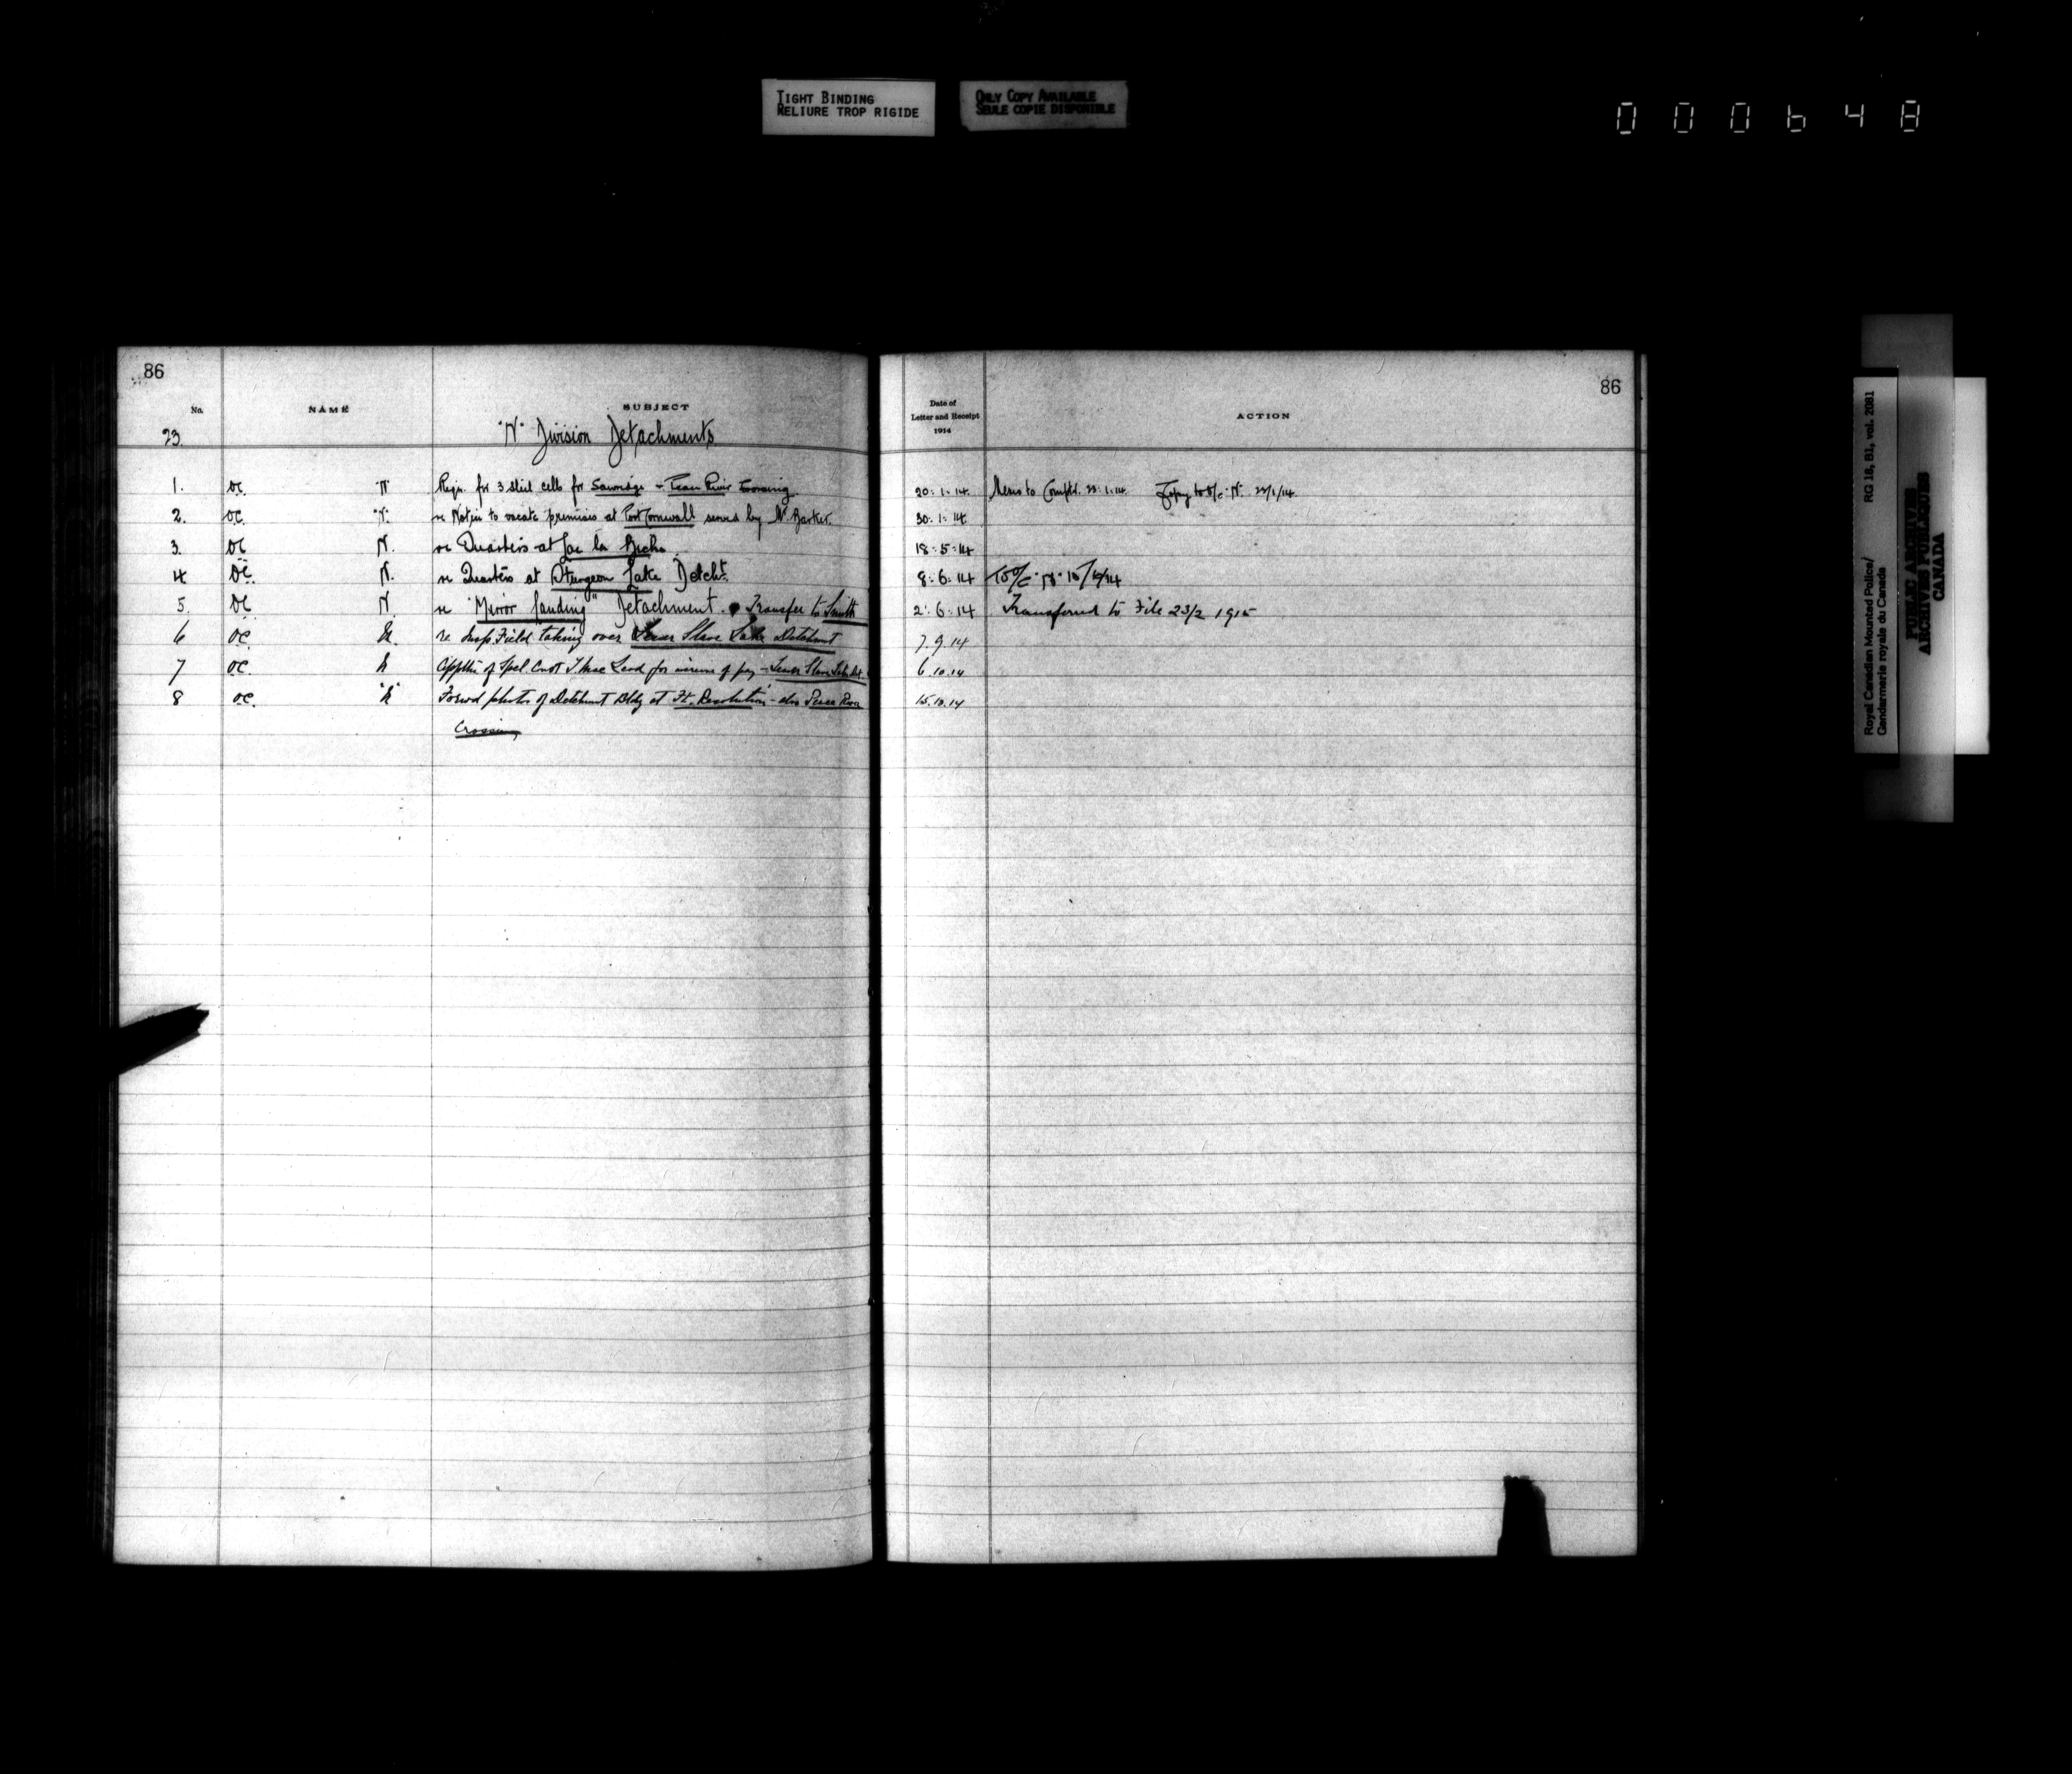 TIGHT BINDING
RELIURE TROP RIGIDE
ONLY COPY AVAILABLE
SEULE COPIE DISPONIBLE
000648
86
No. NAME SUBJECT
23. "N" Division Detachments
1. OC "N" Reqn. for 3 steel cells for Sawridge + River Crossing
2. OC "N" re Notice to vacate premises at Port Cornwall served by Mr. Barker.
3. OC N. re Quarters at Lac la Biche
4 OC. N. re Quarters at Sturgeon Lake Detcht.
5. OC N. re "Mirror Landing" Detachment. Transfer to Smith
6 OC N. re Insp. Field taking over Lesser Slave Lake Detchmnt
7 OC N of Spcl. Const for of pay - Lesser Slave Lake Det.
8 OC. "N" Forwd photos of Detchmnt Bldg at Ft. Resolution - also Peace River
Crossing
86
Date of
Letter and Receipt
1914
ACTION
20.1.14. Memo to Comptr. 23.1.14. Copy to O/C "N" 23/1/14.
30.1.14
18.5.14
8.6.14 To O/C "N" 15/6/14
2.6.14 Transferred to File 23/2 1915
7.9.14
6.10.14
15.10.14
Royal Canadian Mounted Police/ RG 18, B1, vol. 2081
Gendarmerie royale du Canada
PUBLIC ARCHIVES
ARCHIVES PUBLIQUES
CANADA